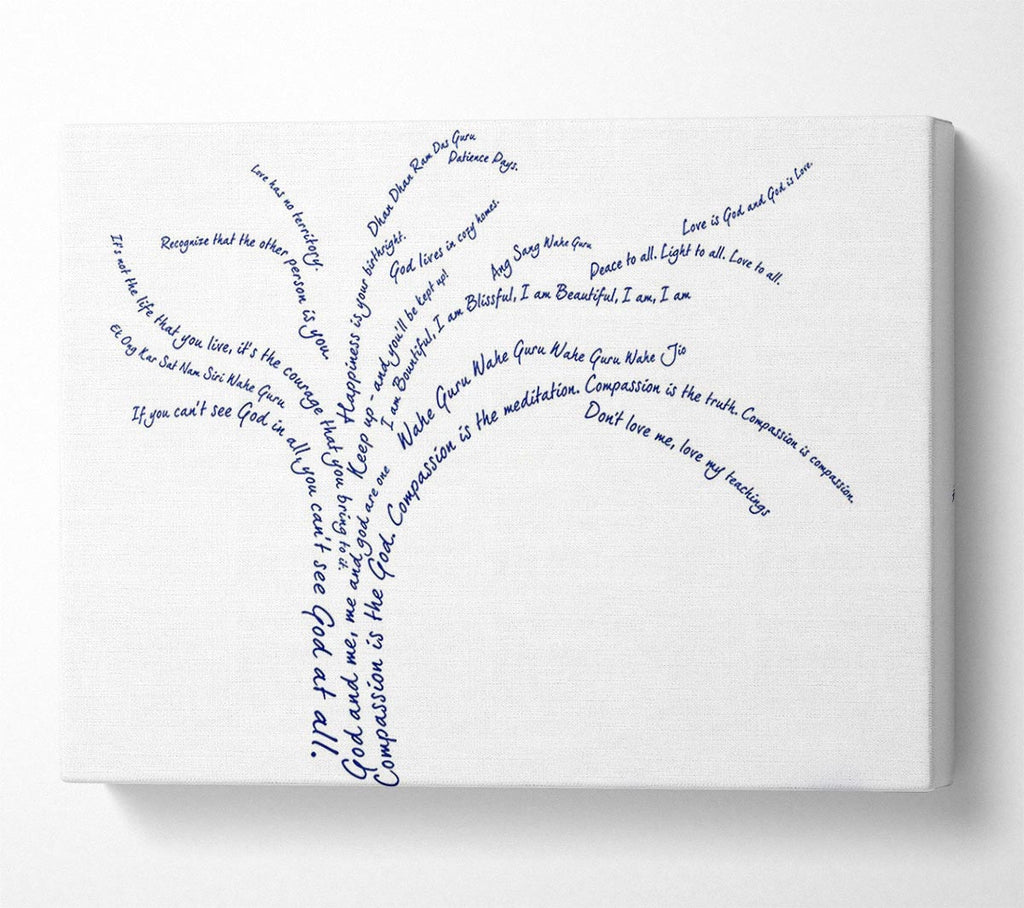 Dhan Dhan Ram Das Guru
Patience Pays.
Love has no territory.
Love is God and God is Love.
Recognise that the other person is you.
God lives in cozy homes.
Happiness is your birthright.
It's not the life that you live, it's the courage that you bring to it.
Ang Sang Wahe Guru
Peace to all. Light to all. Love to all.
Keep up - and you'll be kept up!
I am Bountiful, I am Blissful, I am Beautiful, I am, I am
Ek Ong Kar Sat Nam Siri Wahe Guru
Wahe Guru Wahe Guru Wahe Guru Wahe Jio
If you can't see God in all, you can't see God at all.
God and me, me and god are one
Compassion is the God. Compassion is the meditation. Compassion is the truth. Compassion is compassion.
Don't love me, love my teachings